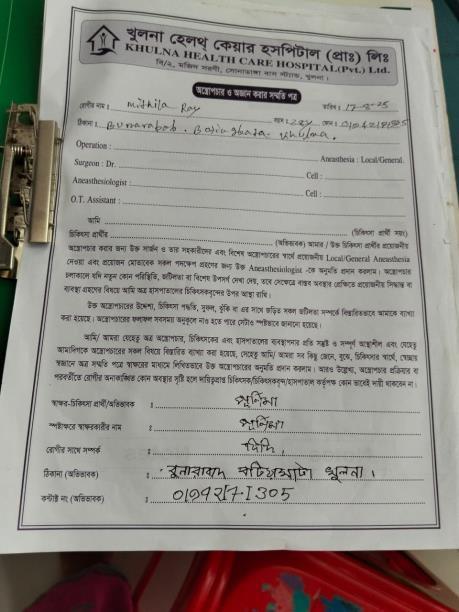 খুলনা হেলথ্ কেয়ার হসপিটাল (প্রাঃ) লিঃ
KHULNA HEALTH CARE HOSPITAL(Pvt.) Ltd.
বি/২, মজিদ সরণী, সোনাডাঙ্গা বাস স্ট্যান্ড, খুলনা।
অস্ত্রোপচার ও অজ্ঞান করার সম্মতি পত্র
রোগীর নাম : Mithila Roy বয়স : 22y তারিখ : 17-8-25
ঠিকানা : ফোন :
Operation :
Surgeon : Dr. Aneasthesia : Local/General.
Aneasthesiologist : Cell :
O.T. Assistant : Cell :
আমি (চিকিৎসা প্রার্থী স্বয়ং)
চিকিৎসা প্রার্থীর (অভিভাবক) আমার / উক্ত চিকিৎসা প্রার্থীর প্রয়োজনীয়
অস্ত্রোপচার করার জন্য উক্ত সার্জন ও তার সহকারীদের এবং বিশেষ অস্ত্রোপচারের স্বার্থে প্রয়োজনে Local/General Aneasthesia
দেওয়া এবং প্রয়োজন মোতাবেক সকল পদক্ষেপ গ্রহণের জন্য উক্ত Aneasthesiologist -কে অনুমতি প্রদান করলাম। অস্ত্রোপচার
চলাকালে যদি নূতন কোন পরিস্থিতি, জটিলতা বা বিশেষ উপসর্গ দেখা দেয়, তবে সেক্ষেত্রে বাস্তব অবস্থার প্রেক্ষিতে প্রয়োজনীয় সিদ্ধান্ত বা
ব্যবস্থা গ্রহণের বিষয়ে আমি অত্র হাসপাতালের চিকিৎসকবৃন্দের উপর আস্থা রাখি।
উক্ত অস্ত্রোপচারের উদ্দেশ্য, চিকিৎসা পদ্ধতি, সুফল, ঝুঁকি বা এর সাথে জড়িত সকল জটিলতা সম্পর্কে বিস্তারিতভাবে আমাকে ব্যাখ্যা
করা হয়েছে। অস্ত্রোপচারের ফলাফল সবসময় অনুকূলে নাও হতে পারে সেটাও স্পষ্টভাবে জানানো হয়েছে।
আমি/ আমরা যেহেতু অত্র অস্ত্রোপচার, চিকিৎসকের এবং হাসপাতালের ব্যবস্থাপনার প্রতি সন্তুষ্ট ও সম্পূর্ণ আস্থাশীল এবং যেহেতু
আমাদিগকে অস্ত্রোপচারের সকল বিষয়ে বিস্তারিত ব্যাখ্যা করা হয়েছে, সেহেতু আমি/ আমরা সব কিছু জেনে, বুঝে, চিকিৎসার স্বার্থে, স্বেচ্ছায়
স্বজ্ঞানে অত্র সম্মতি পত্রে স্বাক্ষরের মাধ্যমে লিখিতভাবে উক্ত অস্ত্রোপচারের অনুমতি প্রদান করলাম। আরও উল্লেখ্য, অস্ত্রোপচার প্রক্রিয়ার বা
পরবর্তীতে রোগীর অনাকাঙ্ক্ষিত কোন অবস্থার সৃষ্টি হলে দায়িত্বপ্রাপ্ত চিকিৎসক/চিকিৎসকবৃন্দ/হাসপাতাল কর্তৃপক্ষ কোন ভাবেই দায়ী থাকবেন না।
স্বাক্ষর-চিকিৎসা প্রার্থী/অভিভাবক : পূর্ণিমা
স্পষ্টাক্ষরে স্বাক্ষরকারীর নাম : পূর্ণিমা
রোগীর সাথে সম্পর্ক : দিদি,
ঠিকানা (অভিভাবক) : খুলনা।
কন্টাক্ট নং (অভিভাবক) :